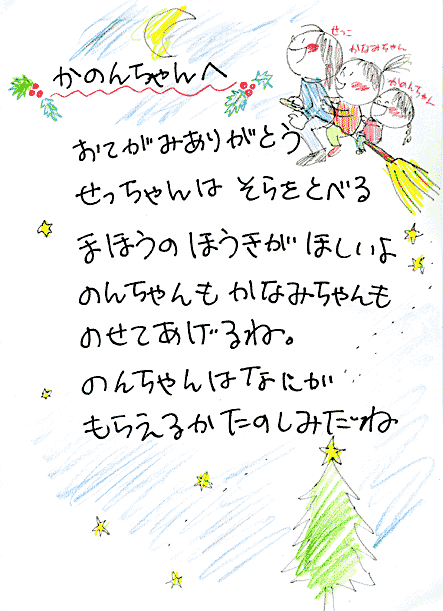 せっこ
かなみちゃん
かのんちゃん
かのんちゃんへ
おてがみありがとう
せっちゃんは そらをとべる
まほうの ほうきが ほしいよ
のんちゃんも かなみちゃんも
のせてあげるね。
のんちゃんは なにが
もらえるか たのしみだね